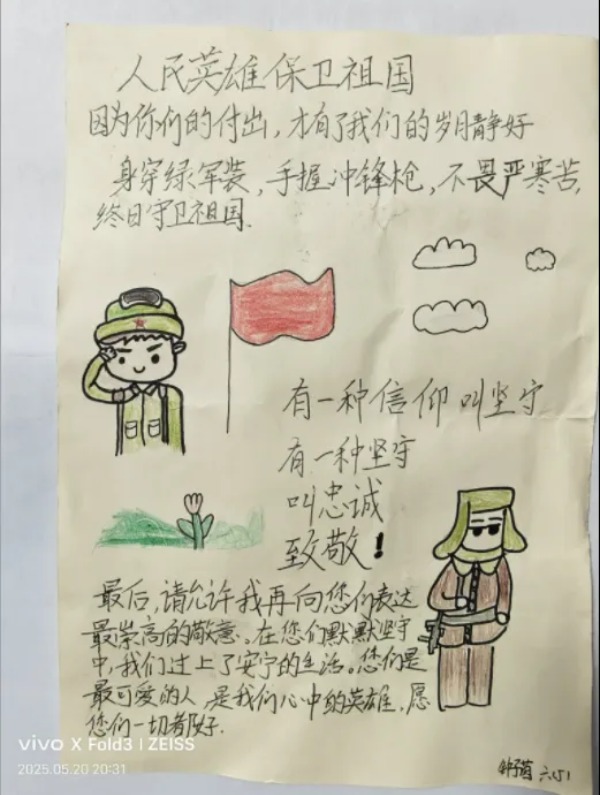 人民英雄保卫祖国
因为你们的付出,才有了我们的岁月静好
身穿绿军装,手握冲锋枪,不畏严寒苦,
终日守卫祖国.
有一种信仰叫坚守
有一种坚守
叫忠诚
致敬!
最后,请允许我再向您们表达
最崇高的敬意。在您们默默坚守
中,我们过上了安宁的生活。您们是
最可爱的人,是我们心中的英雄,愿
您们一切都好.
vivo X Fold3 | ZEISS
2025.05.20 20:31
六(5)